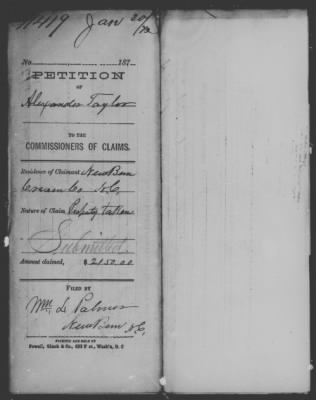 11419 Jan 20/72
No. 187
PETITION
OF
Alexander Taylor
TO THE
COMMISSIONERS OF CLAIMS.
Residence of Claimant New Bern
Craven Co N.C.
Nature of Claim Property taken
Submitted
Amount claimed, $2150.00
FILED BY
Wm L. Palmer
New Bern N.C.
PRINTED AND SOLD BY
Powell, Ginck & Co., 633 F st., Wash'n, D. C